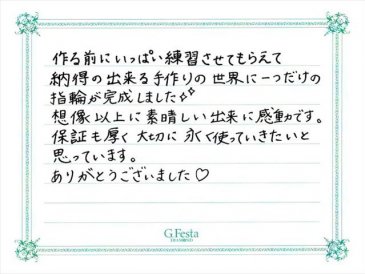 作る前にいっぱい練習させてもらえて
納得の出来る手作りの世界に一つだけの
指輪が完成しました✨
想像以上に素晴しい出来に感動です。
保証も厚く大切に永く使っていきたいと
思っています。
ありがとうございました♡
G.Festa
DIAMOND